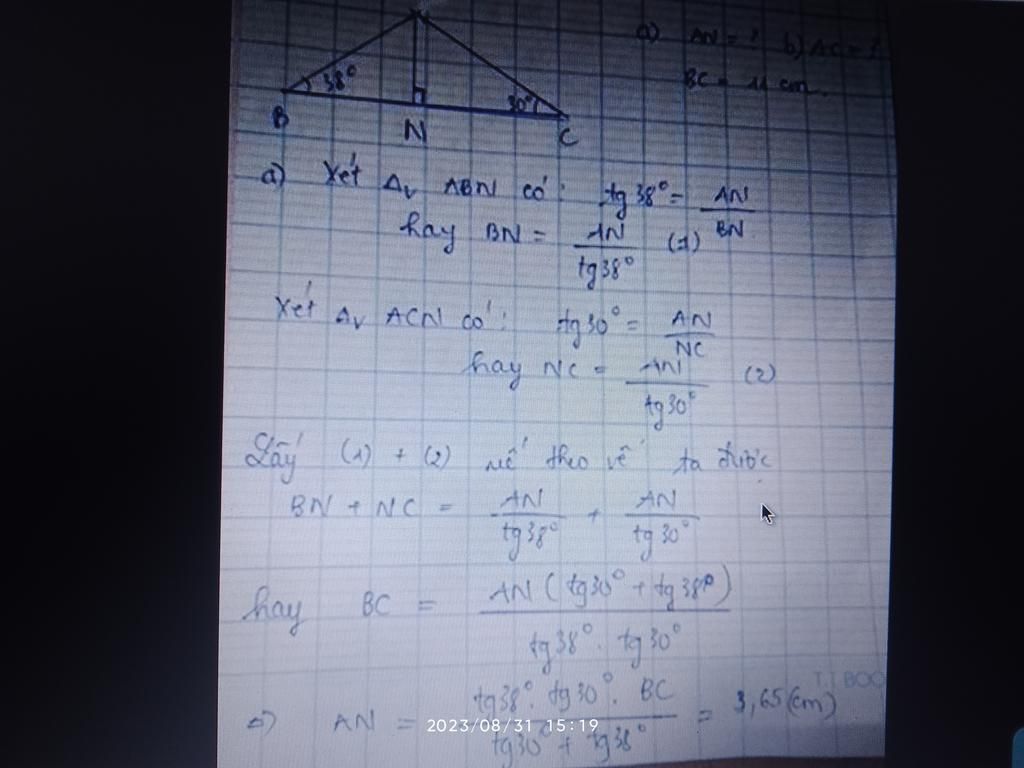 a) AN = ? b) AC = ?
BC = 11 cm.
38°
30°
B
N
C
a) Xét Δv ABN có: tg38° = AN/BN
hay BN = AN/tg38° (1)
Xét Δv ACN có: tg30° = AN/NC
hay NC = AN/tg30° (2)
Lấy (1) + (2) vế theo vế ta được
BN + NC = AN/tg38° + AN/tg30°
hay BC = AN(tg30° + tg38°)/tg38° . tg30°
=> AN = tg38° . tg30° . BC/tg30° + tg38° = 3,65(cm)
T.T BOO
2023/08/31 15:19